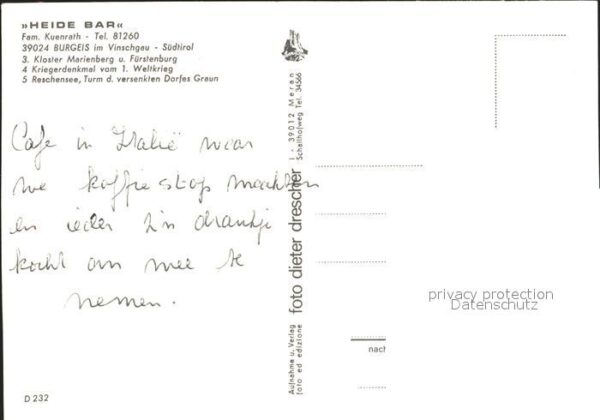 »HEIDE BAR«
Fam. Kuenrath - Tel. 81260
39024 BURGEIS im Vinschgau - Südtirol
3. Kloster Marienberg u. Fürstenburg
4 Kriegerdenkmal vom 1. Weltkrieg
5 Reschensee, Turm d. versenkten Dorfes Graun
Cafe in Italië waar
we koffiestop maakten
en ieder z'n drankje
kocht om mee te
nemen.
D 232
Aufnahme u. Verlag
foto ed edizione
foto dieter drescher
I - 39012 Meran
Schallhofweg Tel. 34566
nach
privacy protection
Datenschutz